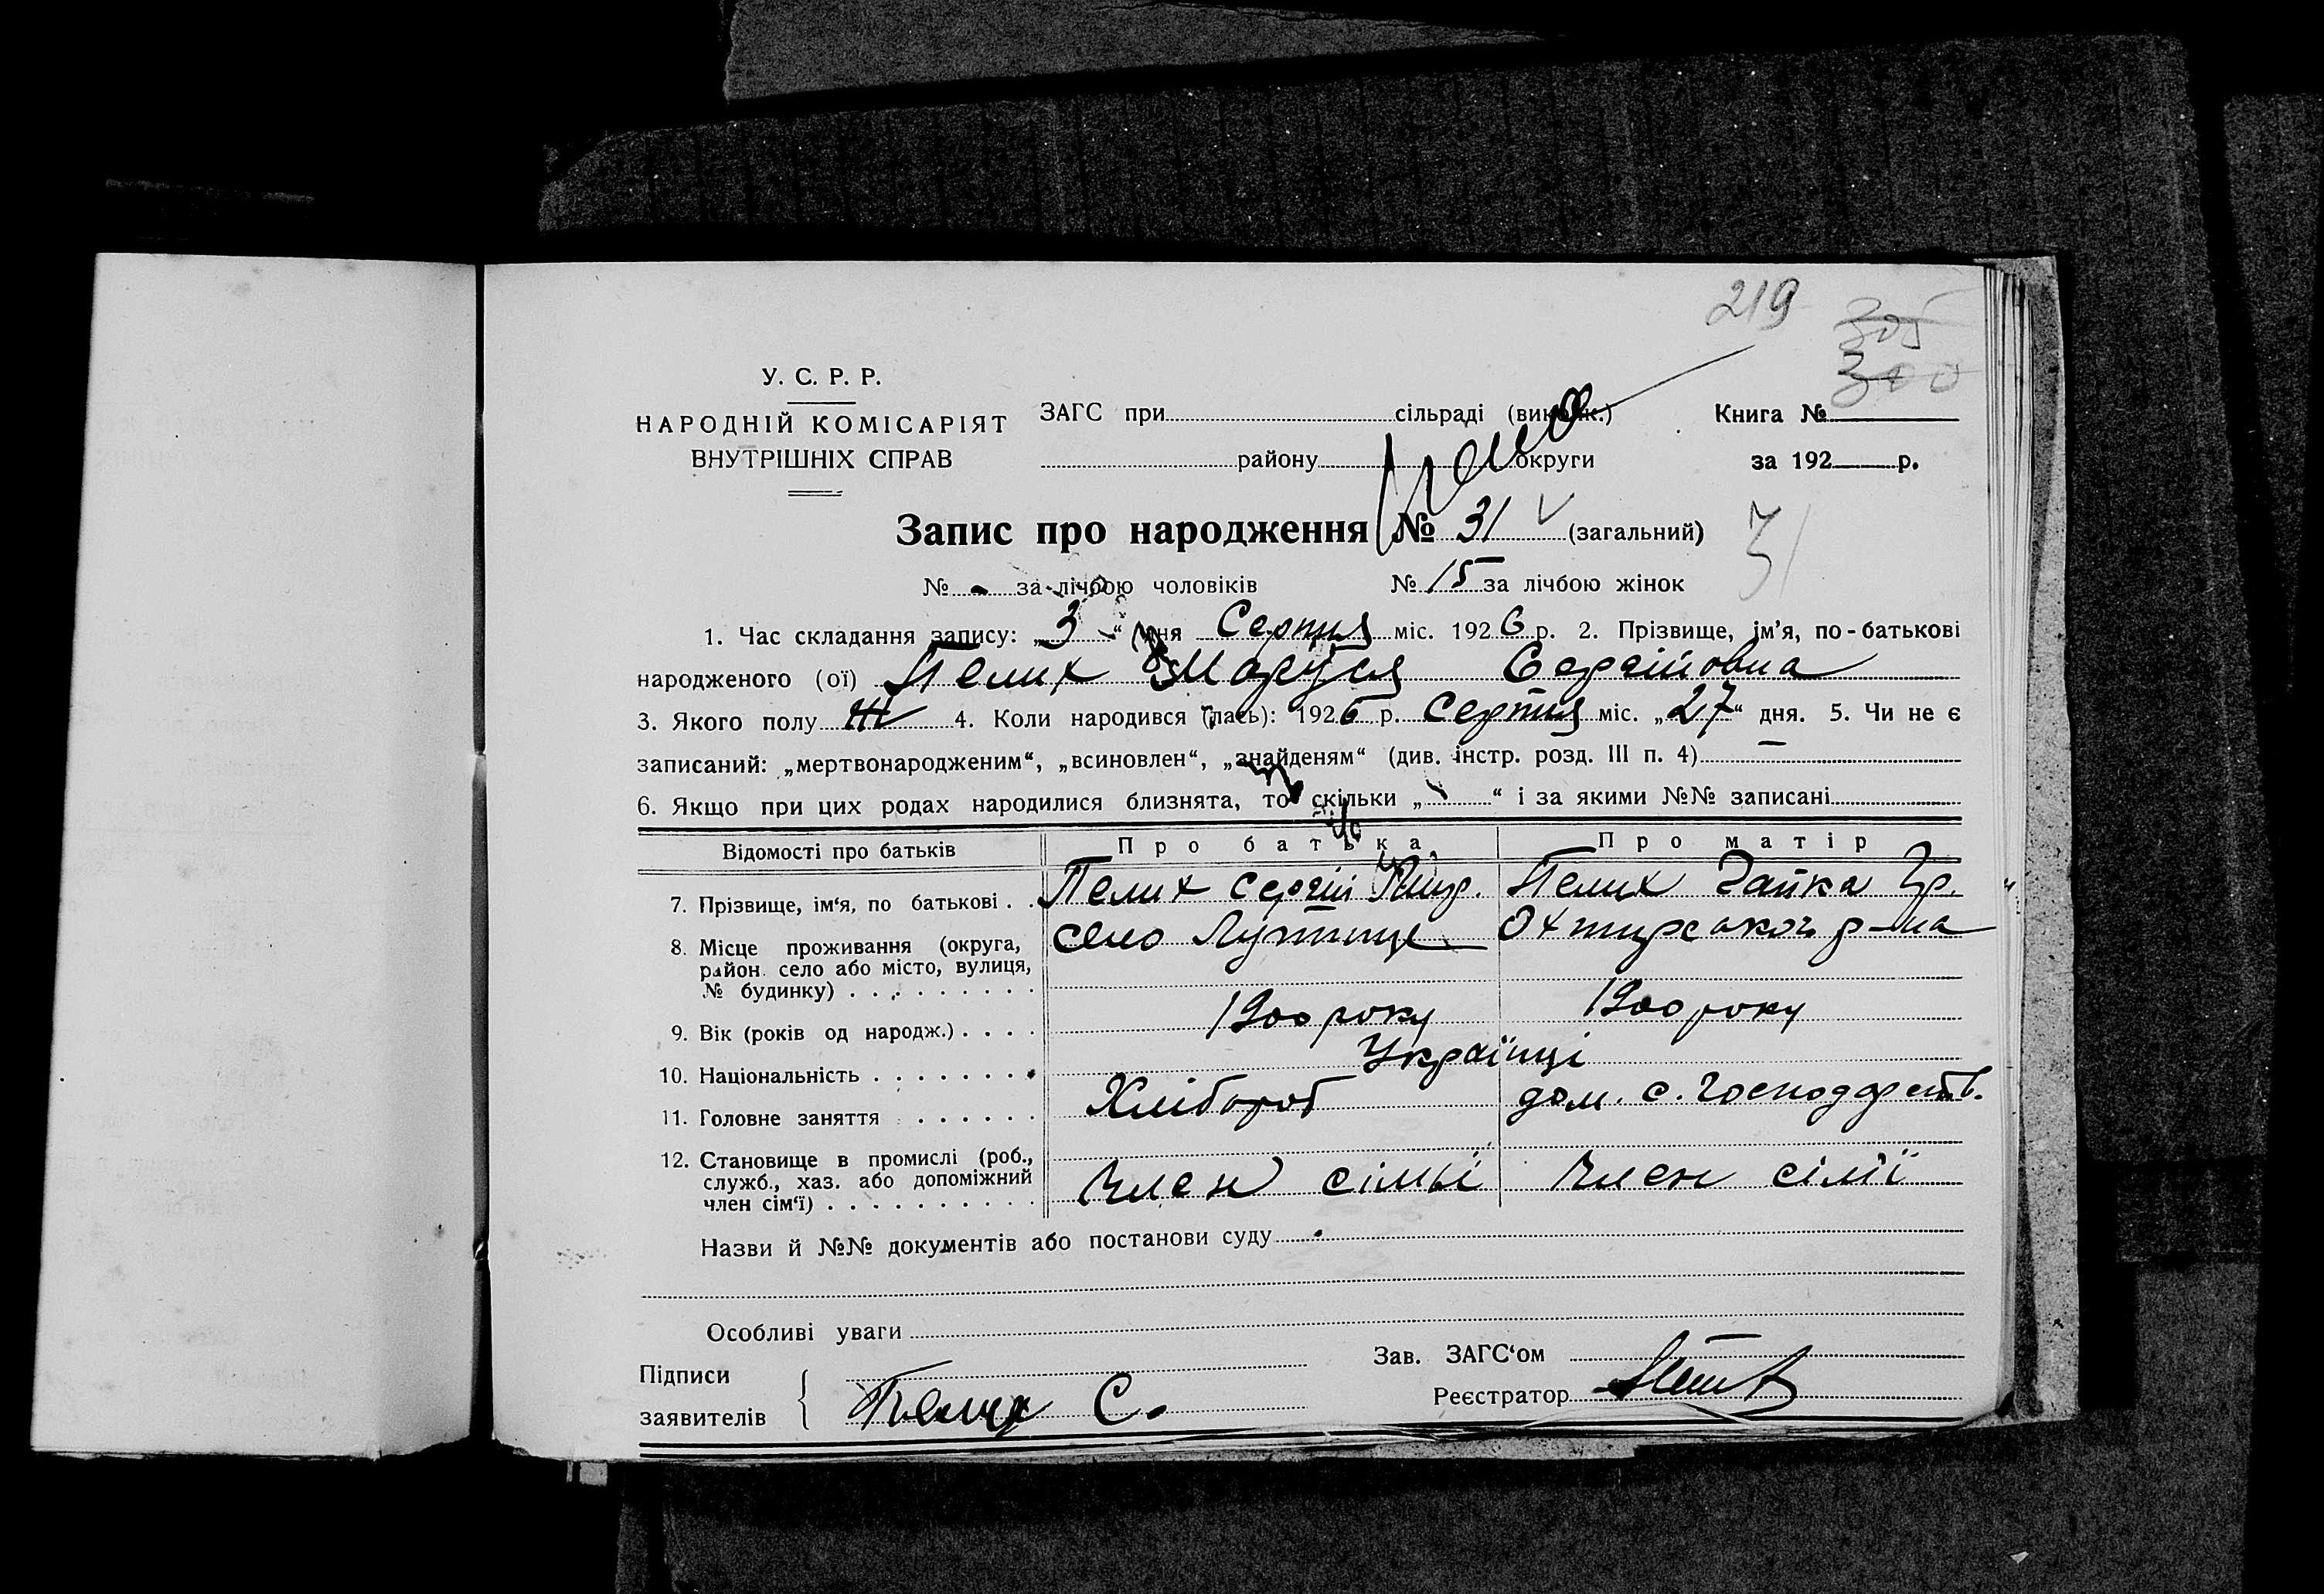 219
305
300
У. С. Р. Р.
НАРОДНІЙ КОМІСАРІЯТ
ВНУТРІШНІХ СПРАВ
ЗАГС при сільраді (викон.к.) Книга №
району округи за 192 р.
Запис про народження № 31 (загальний) 31
№ - за лічбою чоловіків № 15 за лічбою жінок
1. Час складання запису: „3“ дня Серпня міс. 1926 р. 2. Прізвище, ім’я, по-батькові
народженого (ої) Пелих Маруся Сергійовна
3. Якого полу Ж 4. Коли народився (лась): 1926 р. Серпня міс. „27“ дня. 5. Чи не є
записаний: „мертвонародженим“, „всиновлен“, „знайденям“ (див. інстр. розд. III п. 4) —
6. Якщо при цих родах народилися близнята, то скільки „ “ і за якими №№ записані
Відомості про батьків Про батька Про матір
7. Прізвище, ім‘я, по батькові . . Пелих Сергій Пелих Гапка Гр.
8. Місце проживання (округа, село Лутище Охтирського р-на
район. село або місто, вулиця,
№ будинку) . . . . . . . . .
9. Вік (років од народж.) . . . . 1900 року 1900 року
10. Національність . . . . . . . . Українці
11. Головне заняття . . . . . . Хлібороб дом. с. господарств.
12. Становище в промислі (роб.,
служб., хаз. або допоміжний
член сім‘ї) . . . . . . . . . . Член сімьї Член сімї
Назви й №№ документів або постанови суду
Особливі уваги
Підписи Зав. ЗАГС‘ом
заявителів Пелих С. Реєстратор